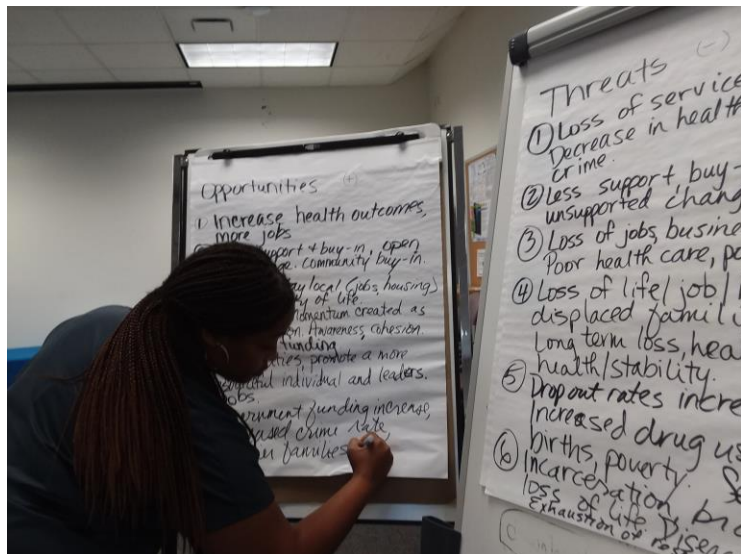 Opportunities (+)
1) Increase health outcomes,
more jobs
support + buy-in, open
community buy-in.
local (jobs, housing)
of life.
momentum created as
Awareness, cohesion.
funding
promote a more
individual and leaders.
jobs.
funding increase,
crime rate,
families
Threats (-)
① Loss of service
Decrease in health
crime.
② Less support, buy-
unsupported chang
③ Loss of jobs, busine
Poor health care, po
④ Loss of life/job/
displaced famili
Long term loss, heal
health/stability.
⑤ Drop out rates incre
Increased drug us
births, poverty.
⑥ Incarceration, bro
loss of life, Disen
Exhaustion of re